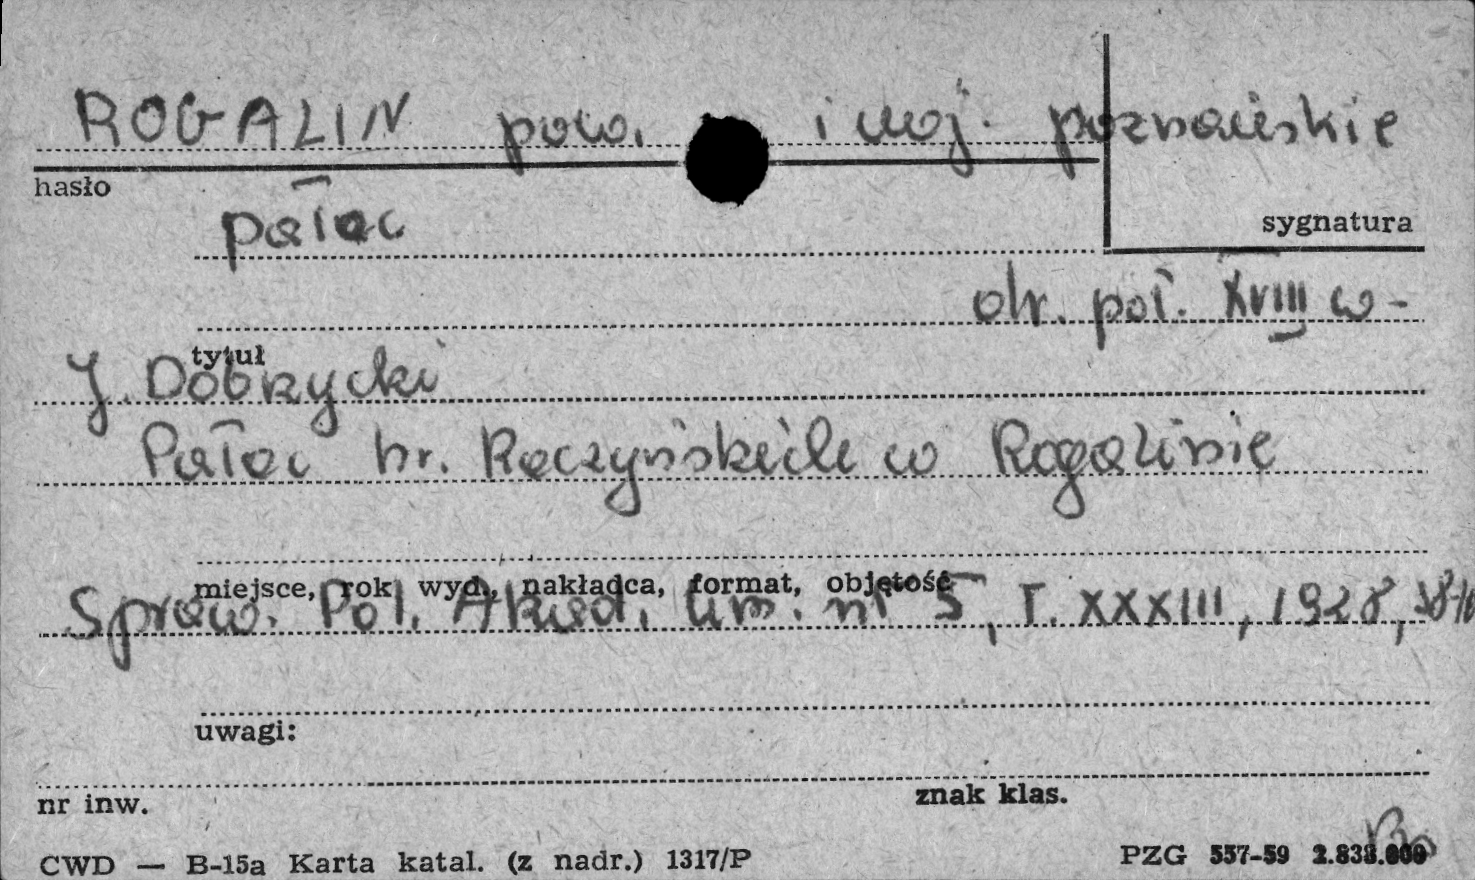 ROGALIN pow. i woj. poznańskie
hasło
pałac
sygnatura
dr. poł. XVIII w-
tytuł
J. Dobrzycki
Pałac hr. Raczyńskich w Rogalinie
miejsce, rok wyd., nakładca, format, objętość
Spraw. Pol. Akad. Um. nr 5, T. XXXIII, 1928,
uwagi:
nr inw.
znak klas.
CWD — B-15a Karta katal. (z nadr.) 1317/P
PZG 557-59 2.838.000